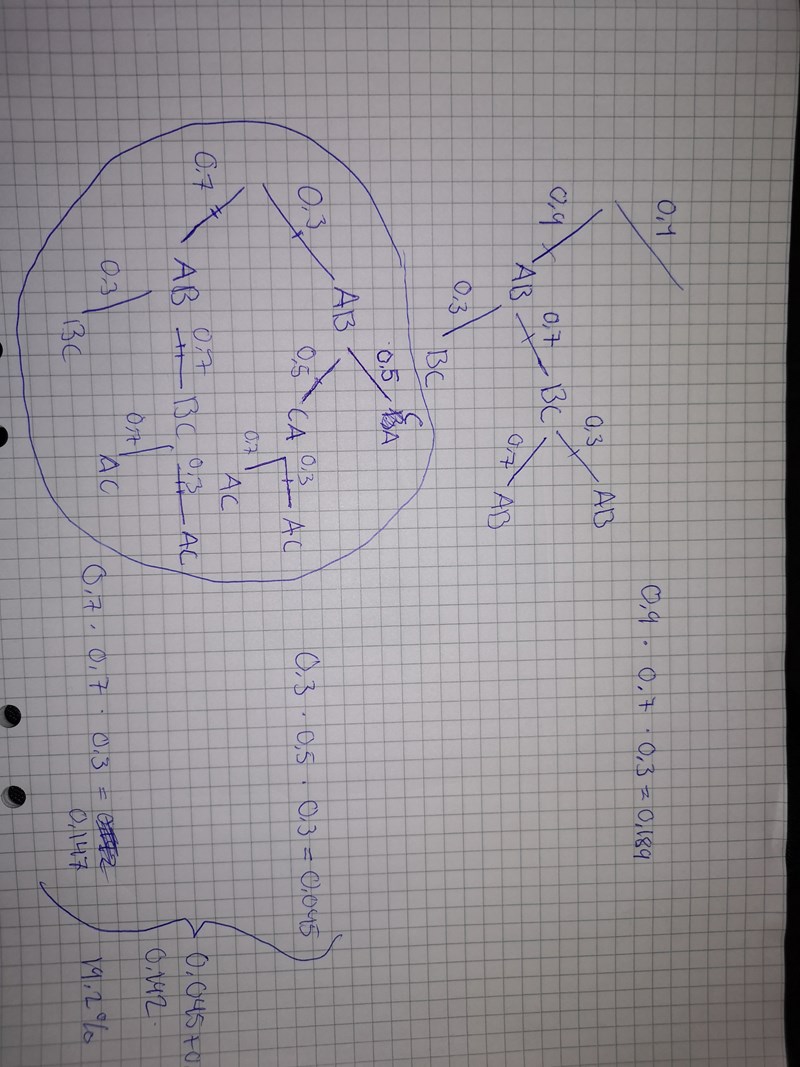 0,1
0,9 · 0,7 · 0,3 = 0,189
0,3 AB
0,9 0,7 BC
AB 0,7 AB
0,3
BC
0,5 CA
AB
0,3 0,5 CA 0,3 AC
0,3 · 0,5 · 0,3 = 0,045
0,7 AC
0,7 AB 0,7 BC 0,3 AC
0,045 + 0
0,192
0,3 0,7 AC
0,7 · 0,7 · 0,3 =
BC 0,147
19,2%